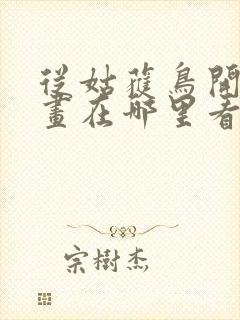 從姑獲鳥開
畫在哪里看
宗樹杰